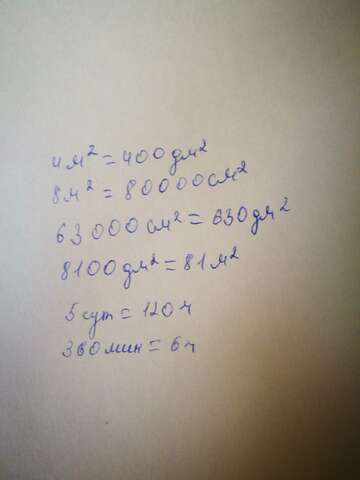 4м² = 400дм²
8м² = 80000см²
63000см² = 630дм²
8100дм² = 81м²
5сут = 120ч
360мин = 6ч